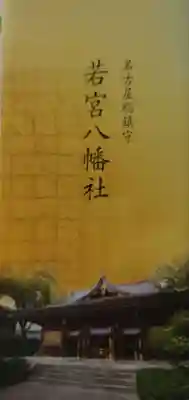 名古屋総鎮守
若宮八幡社